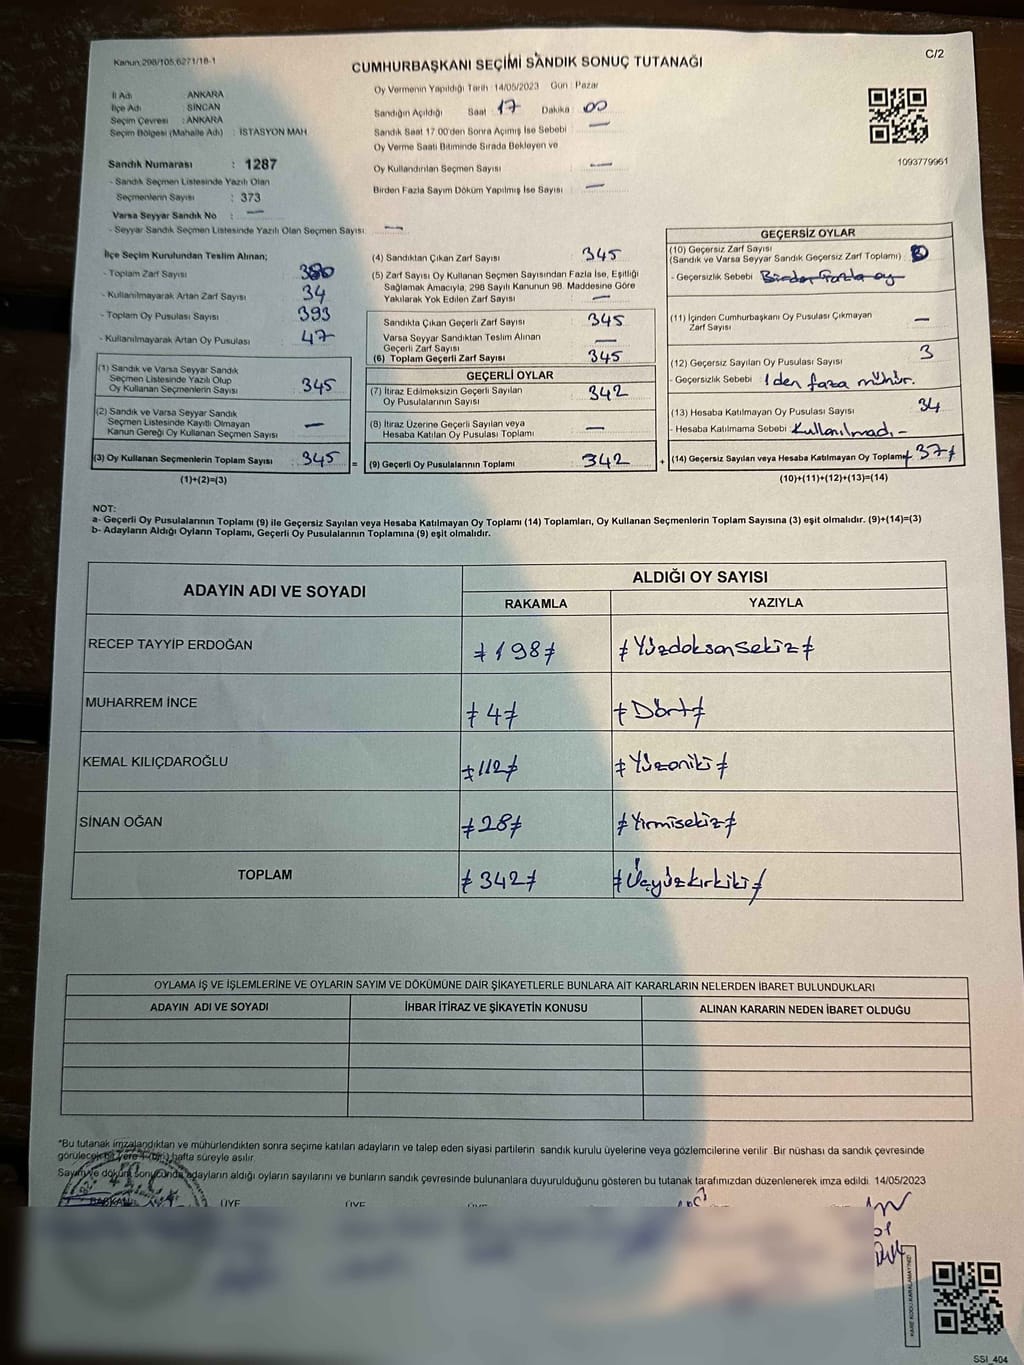 Kanun:298/105,6271/18-1
C/2
CUMHURBAŞKANI SEÇİMİ SANDIK SONUÇ TUTANAĞI
İl Adı ANKARA
İlçe Adı SİNCAN
Seçim Çevresi : ANKARA
Seçim Bölgesi (Mahalle Adı) : İSTASYON MAH.
Sandık Numarası : 1287
- Sandık Seçmen Listesinde Yazılı Olan
Seçmenlerin Sayısı : 373
Varsa Seyyar Sandık No : —
- Seyyar Sandık Seçmen Listesinde Yazılı Olan Seçmen Sayısı: —
Oy Vermenin Yapıldığı Tarih : 14/05/2023 Gün : Pazar
Sandığın Açıldığı Saat : 17 Dakika : 00
Sandık Saat 17.00'den Sonra Açımış İse Sebebi : —
Oy Verme Saati Bitiminde Sırada Bekleyen ve
Oy Kullandırılan Seçmen Sayısı : —
Birden Fazla Sayım Döküm Yapılmış İse Sayısı : —
1093779961
İlçe Seçim Kurulundan Teslim Alınan;
- Toplam Zarf Sayısı : 380
- Kullanılmayarak Artan Zarf Sayısı : 34
- Toplam Oy Pusulası Sayısı : 393
- Kullanılmayarak Artan Oy Pusulası : 47
(1) Sandık ve Varsa Seyyar Sandık
Seçmen Listesinde Yazılı Olup
Oy Kullanan Seçmenlerin Sayısı : 345
(2) Sandık ve Varsa Seyyar Sandık
Seçmen Listesinde Kayıtlı Olmayan
Kanun Gereği Oy Kullanan Seçmen Sayısı : —
(3) Oy Kullanan Seçmenlerin Toplam Sayısı : 345 =
(1)+(2)=(3)
(4) Sandıktan Çıkan Zarf Sayısı : 345
(5) Zarf Sayısı Oy Kullanan Seçmen Sayısından Fazla İse, Eşitliği
Sağlamak Amacıyla; 298 Sayılı Kanunun 98. Maddesine Göre
Yakılarak Yok Edilen Zarf Sayısı : —
Sandıkta Çıkan Geçerli Zarf Sayısı : 345
Varsa Seyyar Sandıktan Teslim Alınan
Geçerli Zarf Sayısı : —
(6) Toplam Geçerli Zarf Sayısı : 345
GEÇERLİ OYLAR
(7) İtiraz Edilmeksizin Geçerli Sayılan
Oy Pusulalarının Sayısı : 342
(8) İtiraz Üzerine Geçerli Sayılan veya
Hesaba Katılan Oy Pusulası Toplamı : —
(9) Geçerli Oy Pusulalarının Toplamı : 342 +
GEÇERSİZ OYLAR
(10) Geçersiz Zarf Sayısı
(Sandık ve Varsa Seyyar Sandık Geçersiz Zarf Toplamı) :
- Geçersizlik Sebebi : Birden fazla oy
(11) İçinden Cumhurbaşkanı Oy Pusulası Çıkmayan
Zarf Sayısı : —
(12) Geçersiz Sayılan Oy Pusulası Sayısı : 3
- Geçersizlik Sebebi : 1 den fazla mühür.
(13) Hesaba Katılmayan Oy Pusulası Sayısı : 34
- Hesaba Katılmama Sebebi : Kullanılmadı -
(14) Geçersiz Sayılan veya Hesaba Katılmayan Oy Toplamı ≠37≠
(10)+(11)+(12)+(13)=(14)
NOT:
a- Geçerli Oy Pusulalarının Toplamı (9) ile Geçersiz Sayılan veya Hesaba Katılmayan Oy Toplamı (14) Toplamları, Oy Kullanan Seçmenlerin Toplam Sayısına (3) eşit olmalıdır. (9)+(14)=(3)
b- Adayların Aldığı Oyların Toplamı, Geçerli Oy Pusulalarının Toplamına (9) eşit olmalıdır.
ADAYIN ADI VE SOYADI ALDIĞI OY SAYISI
RAKAMLA YAZIYLA
RECEP TAYYİP ERDOĞAN ≠198≠ ≠Yüzdoksansekiz≠
MUHARREM İNCE ≠4≠ ≠Dört≠
KEMAL KILIÇDAROĞLU ≠112≠ ≠Yüzoniki≠
SİNAN OĞAN ≠28≠ ≠Yirmisekiz≠
TOPLAM ≠342≠ ≠Üçyüzkırkiki≠
OYLAMA İŞ VE İŞLEMLERİNE VE OYLARIN SAYIM VE DÖKÜMÜNE DAİR ŞİKAYETLERLE BUNLARA AİT KARARLARIN NELERDEN İBARET BULUNDUKLARI
ADAYIN ADI VE SOYADI İHBAR İTİRAZ VE ŞİKAYETİN KONUSU ALINAN KARARIN NEDEN İBARET OLDUĞU
*Bu tutanak imzalandıktan ve mühürlendikten sonra seçime katılan adayların ve talep eden siyasi partilerin sandık kurulu üyelerine veya gözlemcilerine verilir. Bir nüshası da sandık çevresinde
görülecek bir yere 1 (bir) hafta süreyle asılır.
Sayım ve döküm sonucunda adayların aldığı oyların sayılarını ve bunların sandık çevresinde bulunanlara duyurulduğunu gösteren bu tutanak tarafımızdan düzenlenerek imza edildi. 14/05/2023
BAŞKAN ÜYE ÜYE ÜYE
KARE KODU KARALAMAYINIZ!
SSI_404